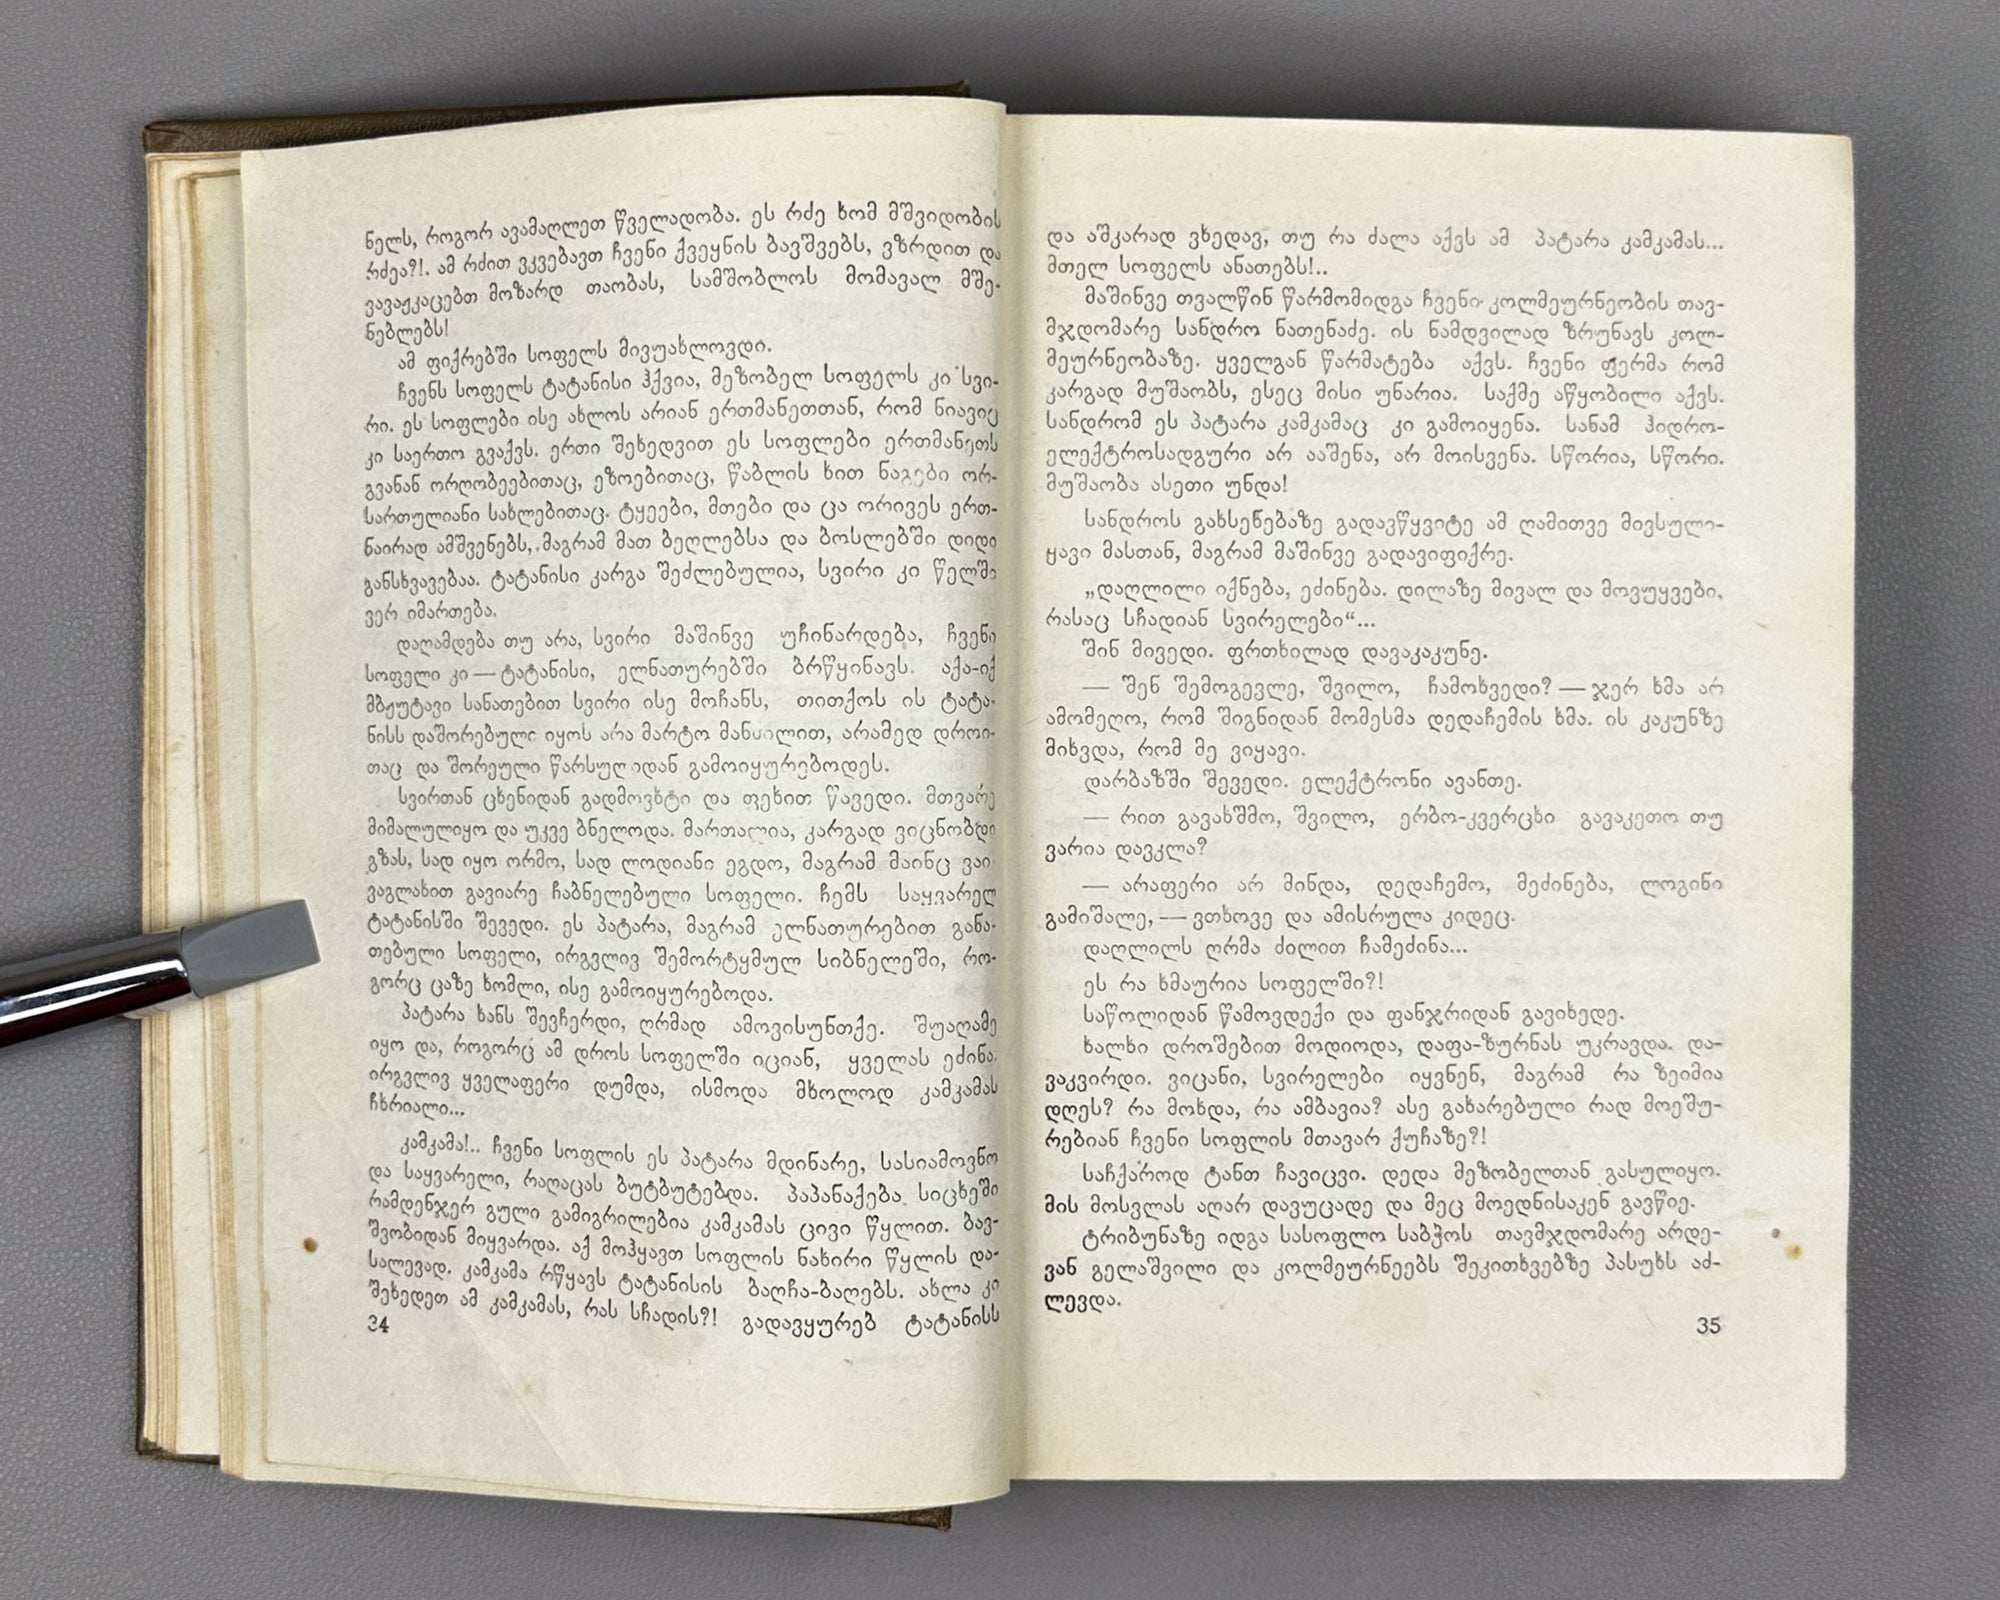 ნელს, როგორ ავამაღლეთ წველადობა. ეს რძე ხომ მშვიდობის
რძეა?!. ამ რძით ვკვებავთ ჩვენი ქვეყნის ბავშვებს, ვზრდით და
ვავაჟკაცებთ მოზარდ თაობას, სამშობლოს მომავალ მშე-
ნებლებს!
ამ ფიქრებში სოფელს მივუახლოვდი.
ჩვენს სოფელს ტატანისი ჰქვია, მეზობელ სოფელს კი სვი-
რი. ეს სოფლები ისე ახლოს არიან ერთმანეთთან, რომ ნიავიც
კი საერთო გვაქვს. ერთი შეხედვით ეს სოფლები ერთმანეთს
გვანან ორღობეებითაც, ეზოებითაც, წაბლის ხით ნაგები ორ-
სართულიანი სახლებითაც. ტყეები, მთები და ცა ორივეს ერთ-
ნაირად ამშვენებს, მაგრამ მათ ბეღლებსა და ბოსლებში დიდი
განსხვავებაა. ტატანისი კარგა შეძლებულია, სვირი კი წელში
ვერ იმართება.
დაღამდება თუ არა, სვირი მაშინვე უჩინარდება, ჩვენი
სოფელი კი — ტატანისი, ელნათურებში ბრწყინავს. აქა-იქ
მბჟუტავი სანათებით სვირი ისე მოჩანს, თითქოს ის ტატა-
ნისს დაშორებული იყოს არა მარტო მანძილით, არამედ დროი-
თაც და შორეული წარსულიდან გამოიყურებოდეს.
სვირთან ცხენიდან გადმოვხტი და ფეხით წავედი. მთვარე
მიმალულიყო და უკვე ბნელოდა. მართალია, კარგად ვიცნობდი
გზას, სად იყო ორმო, სად ლოდიანი ეგდო, მაგრამ მაინც ვაი-
ვაგლახით გავიარე ჩაბნელებული სოფელი. ჩემს საყვარელ
ტატანისში შევედი. ეს პატარა, მაგრამ ელნათურებით განა-
თებული სოფელი, ირგვლივ შემორტყმულ სიბნელეში, რო-
გორც ცაზე ხომლი, ისე გამოიყურებოდა.
პატარა ხანს შევჩერდი, ღრმად ამოვისუნთქე. შუაღამე
იყო და, როგორც ამ დროს სოფელში იციან, ყველას ეძინა.
ირგვლივ ყველაფერი დუმდა, ისმოდა მხოლოდ კამკამას
ჩხრიალი...
კამკამა!.. ჩვენი სოფლის ეს პატარა მდინარე, სასიამოვნო
და საყვარელი, რაღაცას ბუტბუტებდა. პაპანაქება სიცხეში
რამდენჯერ გული გამიგრილებია კამკამას ცივი წყლით. ბავ-
შვობიდან მიყვარდა. აქ მოჰყავთ სოფლის ნახირი წყლის და-
სალევად. კამკამა რწყავს ტატანისის ბაღჩა-ბაღებს. ახლა კი
შეხედეთ ამ კამკამას, რას სჩადის?! გადავყურებ ტატანისს
34
და აშკარად ვხედავ, თუ რა ძალა აქვს ამ პატარა კამკამას...
მთელ სოფელს ანათებს!..
მაშინვე თვალწინ წარმომიდგა ჩვენი კოლმეურნეობის თავ-
მჯდომარე სანდრო ნათენაძე. ის ნამდვილად ზრუნავს კოლ-
მეურნეობაზე. ყველგან წარმატება აქვს. ჩვენი ფერმა რომ
კარგად მუშაობს, ესეც მისი უნარია. საქმე აწყობილი აქვს.
სანდრომ ეს პატარა კამკამაც კი გამოიყენა. სანამ ჰიდრო-
ელექტროსადგური არ ააშენა, არ მოისვენა. სწორია, სწორი.
მუშაობა ასეთი უნდა!
სანდროს გახსენებაზე გადავწყვიტე ამ ღამითვე მივსული-
ყავი მასთან, მაგრამ მაშინვე გადავიფიქრე.
„დაღლილი იქნება, ეძინება. დილაზე მივალ და მოვუყვები,
რასაც სჩადიან სვირელები“...
შინ მივედი. ფრთხილად დავაკაკუნე.
— შენ შემოგევლე, შვილო, ჩამოხვედი? — ჯერ ხმა არ
ამომეღო, რომ შიგნიდან მომესმა დედაჩემის ხმა. ის კაკუნზე
მიხვდა, რომ მე ვიყავი.
დარბაზში შევედი. ელექტრონი ავანთე.
— რით გავახშმო, შვილო, ერბო-კვერცხი გავაკეთო თუ
ვარია დავკლა?
— არაფერი არ მინდა, დედაჩემო, მეძინება, ლოგინი
გამიშალე, — ვთხოვე და ამისრულა კიდეც.
დაღლილს ღრმა ძილით ჩამეძინა...
ეს რა ხმაურია სოფელში?!
საწოლიდან წამოვდექი და ფანჯრიდან გავიხედე.
ხალხი დროშებით მოდიოდა, დაფა-ზურნას უკრავდა. და-
ვაკვირდი. ვიცანი, სვირელები იყვნენ, მაგრამ რა ზეიმია
დღეს? რა მოხდა, რა ამბავია? ასე გახარებული რად მოეშუ-
რებიან ჩვენი სოფლის მთავარ ქუჩაზე?!
საჩქაროდ ტანთ ჩავიცვი. დედა მეზობელთან გასულიყო.
მის მოსვლას აღარ დავუცადე და მეც მოედნისაკენ გავწიე.
ტრიბუნაზე იდგა სასოფლო საბჭოს თავმჯდომარე არდე-
ვან გელაშვილი და კოლმეურნეებს შეკითხვებზე პასუხს აძ-
ლევდა.
35